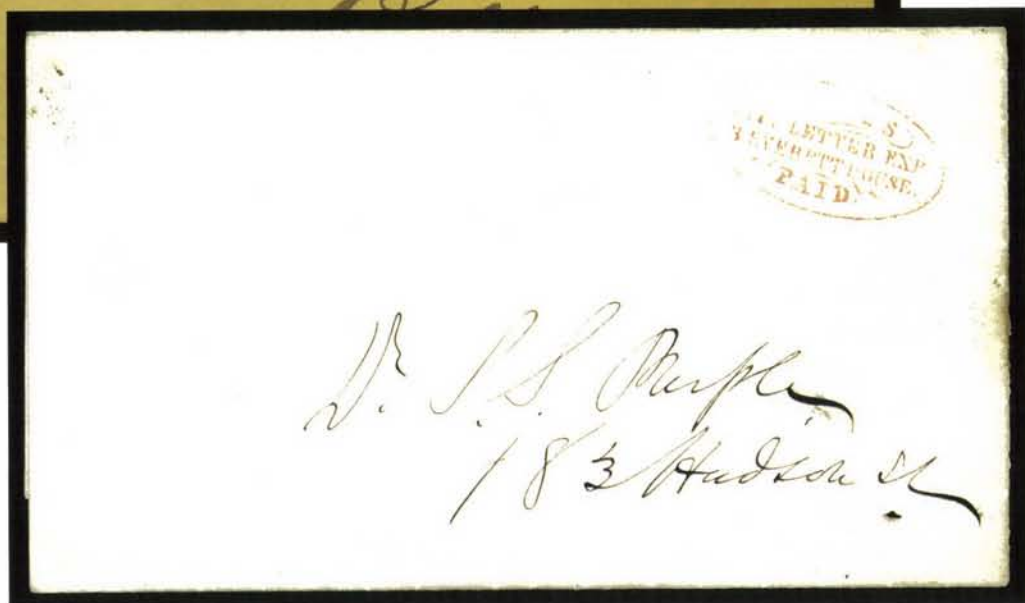 S
LETTER EXP
EVERETT HOUSE.
PAID.
Dr. S. S. Purple
183 Hudson St